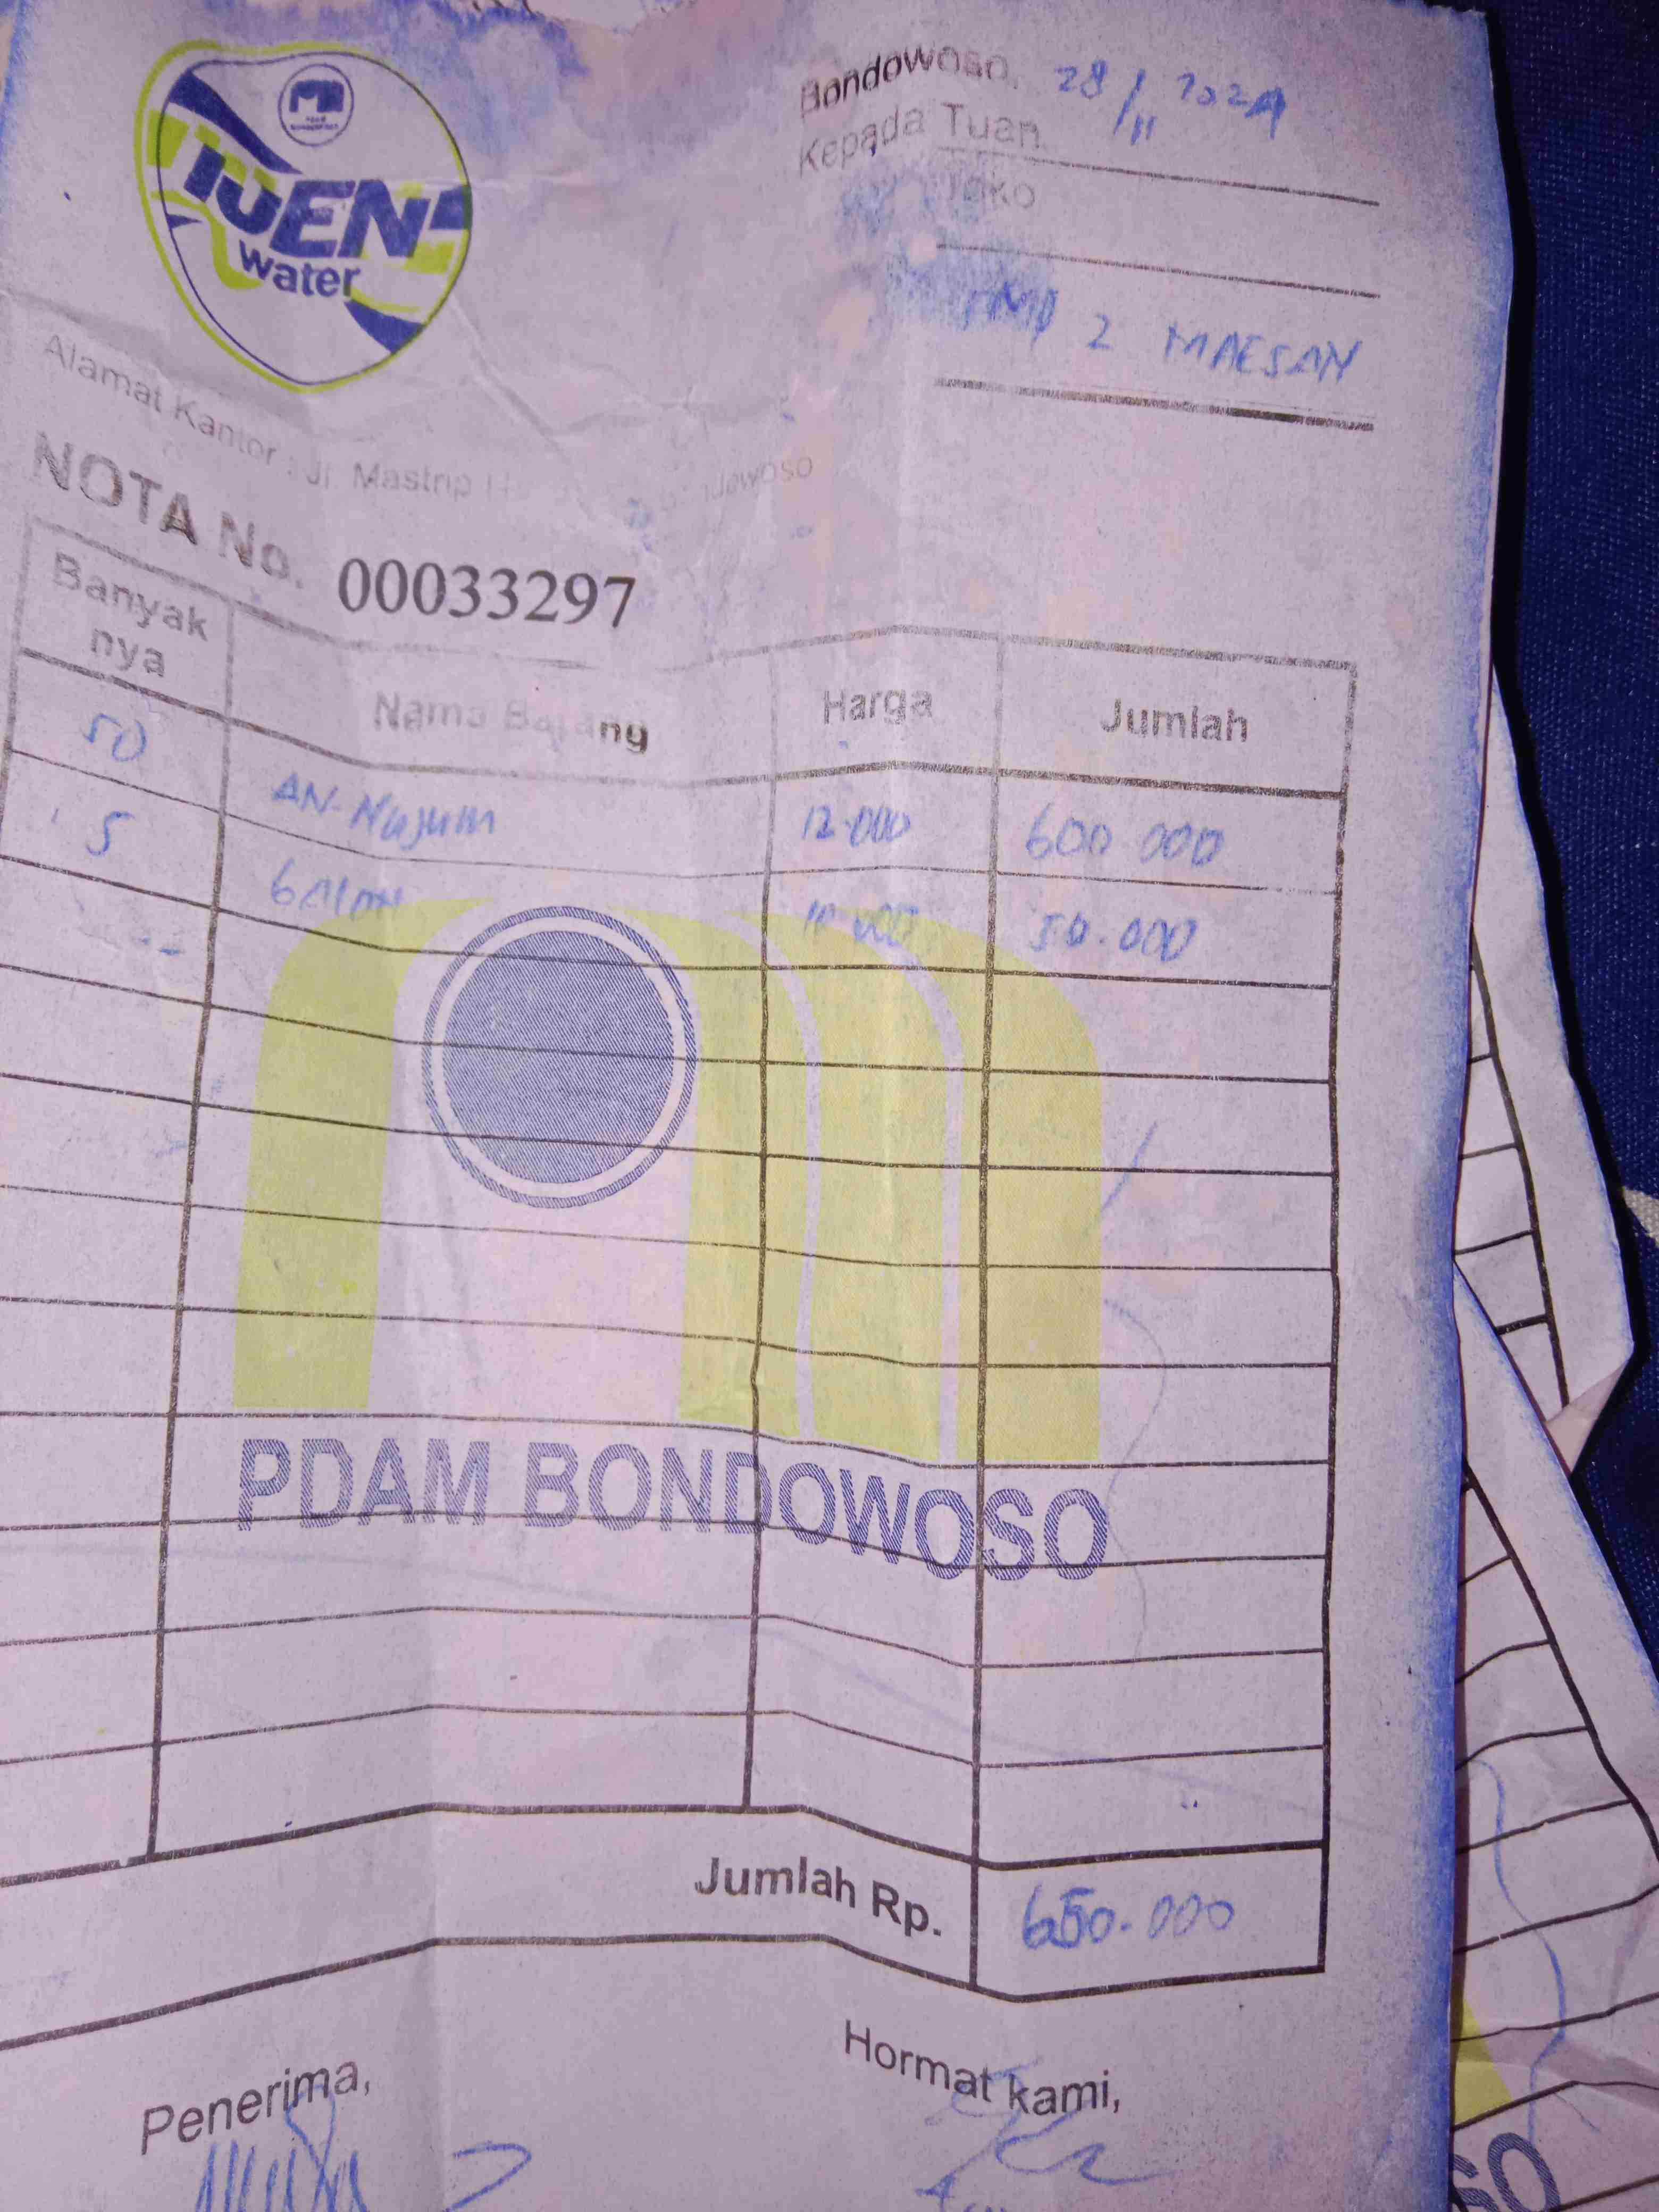 Bondowoso, 28/11 2024
Kepada Tuan
Toko
2 MAESAN
TUEN
water
Alamat Kantor : Jl. Mastrip
NOTA No. 00033297
Banyak nya Nama Barang Harga Jumlah
50 AN-Nujum 12.000 600.000
5 GALON 10.000 50.000
PDAM BONDOWOSO
Jumlah Rp. 650.000
Penerima, Hormat kami,